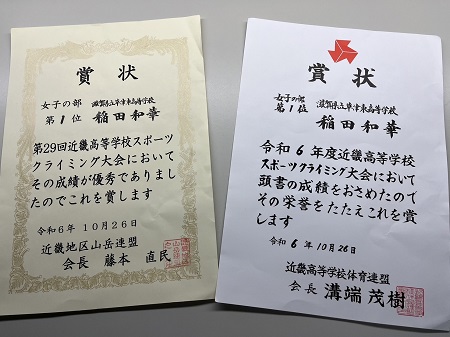 賞状
女子の部 滋賀県立草津東高等学校
第1位 稲田和華
第29回近畿高等学校スポーツ
クライミング大会において
その成績が優秀でありまし
たのでこれを賞します
令和6年10月26日
近畿地区山岳連盟
会長 藤本 直民
賞状
女子の部 滋賀県立草津東高等学校
第1位 稲田和華
令和6年度近畿高等学校
スポーツクライミング大会において
頭書の成績をおさめたので
その栄誉をたたえこれを賞
します
令和6年10月26日
近畿高等学校体育連盟
会長 溝端茂樹